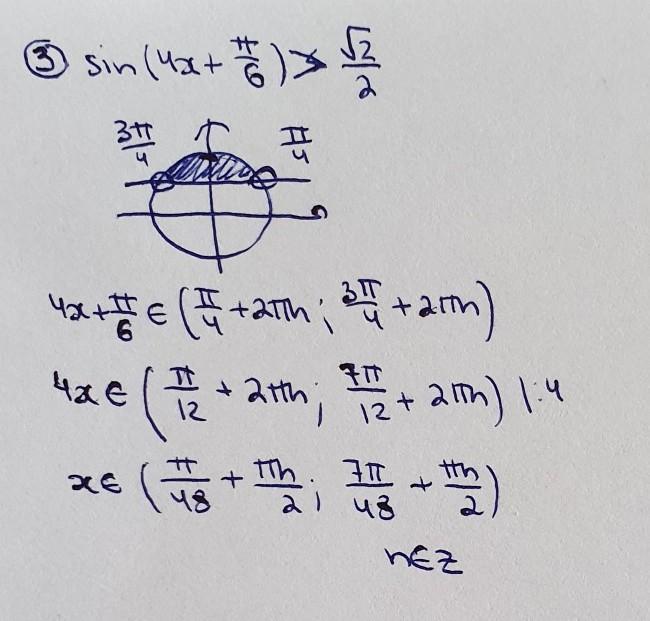 ③ sin(4x + π/6) > √2/2
3π/4 π/4
0
4x + π/6 ∈ (π/4 + 2πn; 3π/4 + 2πn)
4x ∈ (π/12 + 2πn; 7π/12 + 2πn) |:4
x ∈ (π/48 + πn/2; 7π/48 + πn/2)
n∈Z